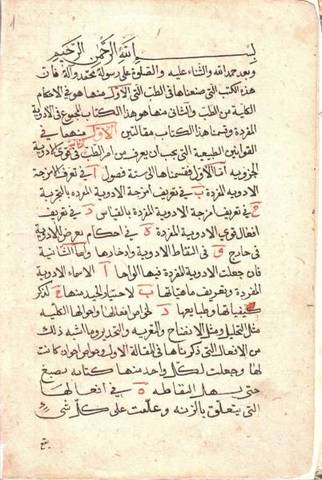 بسم الله الرحمن الرحيم
وبعد حمد الله والثناء عليه والصلوة على رسوله محمد وآله فان
هذه الكتب التى صنفناها فى الطب التى الاول منها هو فى الاحكام
الكلية من الطب والثانى منها هو هذا الكتاب المجموع فى الادوية
المفردة وقسمنا هذا الكتاب مقالتين الاول منهما فى
القوانين الطبيعية التى يجب ان يعرف من امر الطب فى قوى الادوية
الجزوية اما الاول فقسمناها الى ستة فصول ا فى تعريف امزجة
الادوية المفردة ب فى تعريف امزجة الادوية المفردة بالتجربة
ج فى تعريف امزجة الادوية المفردة بالقياس د فى تعريف
افعال قوى الادوية المفردة ه فى احكام تعرض للادوية
فى خارج و فى التقاط الادوية وادخارها واما الثانية
فان جعلت الادوية المفردة فيها الواحا ا الاسماء الادوية
المفردة وتعريف ماهياتها ب لاختيار الجيد منها ج لذكر
كيفياتها وطبايعها د لخواص افعالها واحوالها الكلية
مثل التحليل ومثل الانضاج والتغرية والتخدير وما اشبه ذلك
من الافعال التى ذكرناها فى المقالة الاولى وخواص اخر ان كانت
لها وجعلت لكل واحد منها كتابه بصبغ
حتى يسهل التقاطه ه فى افعالها
التى يتعلق بالزينة وعلمت على كل شى